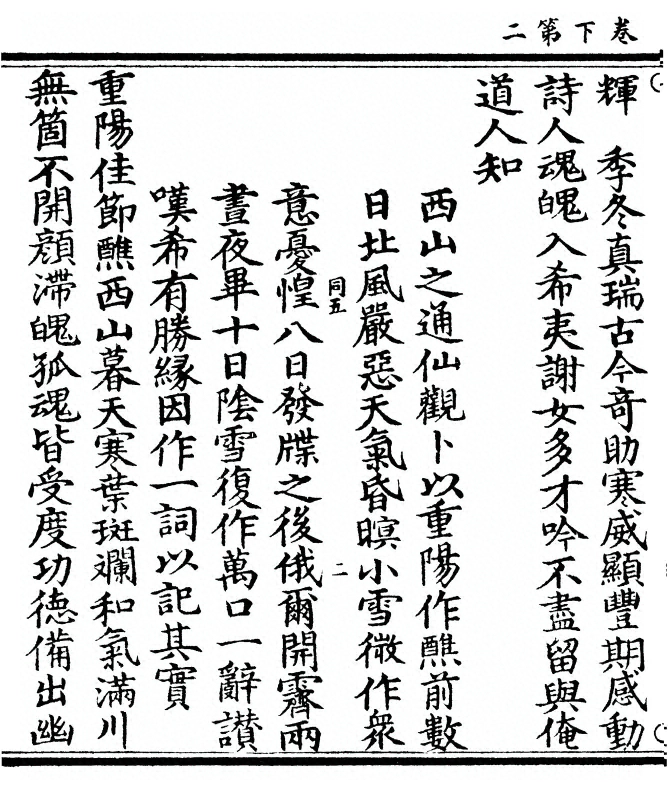 卷下第二
輝　季冬真瑞古今奇助寒威顯豐期感動
詩人魂魄入希夷謝女多才吟不盡留與俺
道人知
西山之通仙觀卜以重陽作醮前數
日北風嚴惡天氣昏暝小雪微作衆
意憂惶八日發牒之後俄爾開霽兩
晝夜畢十日陰雪復作萬口一辭讃
嘆希有勝緣因作一詞以記其實
重陽佳節醮西山暮天寒葉斑斕和氣滿川
無箇不開顏滯魄孤魂皆受度功德備出幽
同五
二